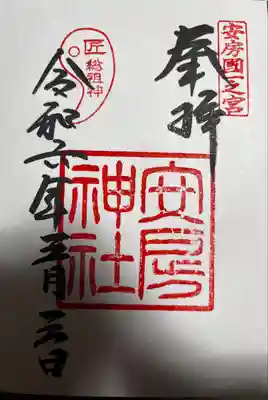 安房國一之宮
奉拝
安房
神社
匠
総祖神
令和六年五月三日